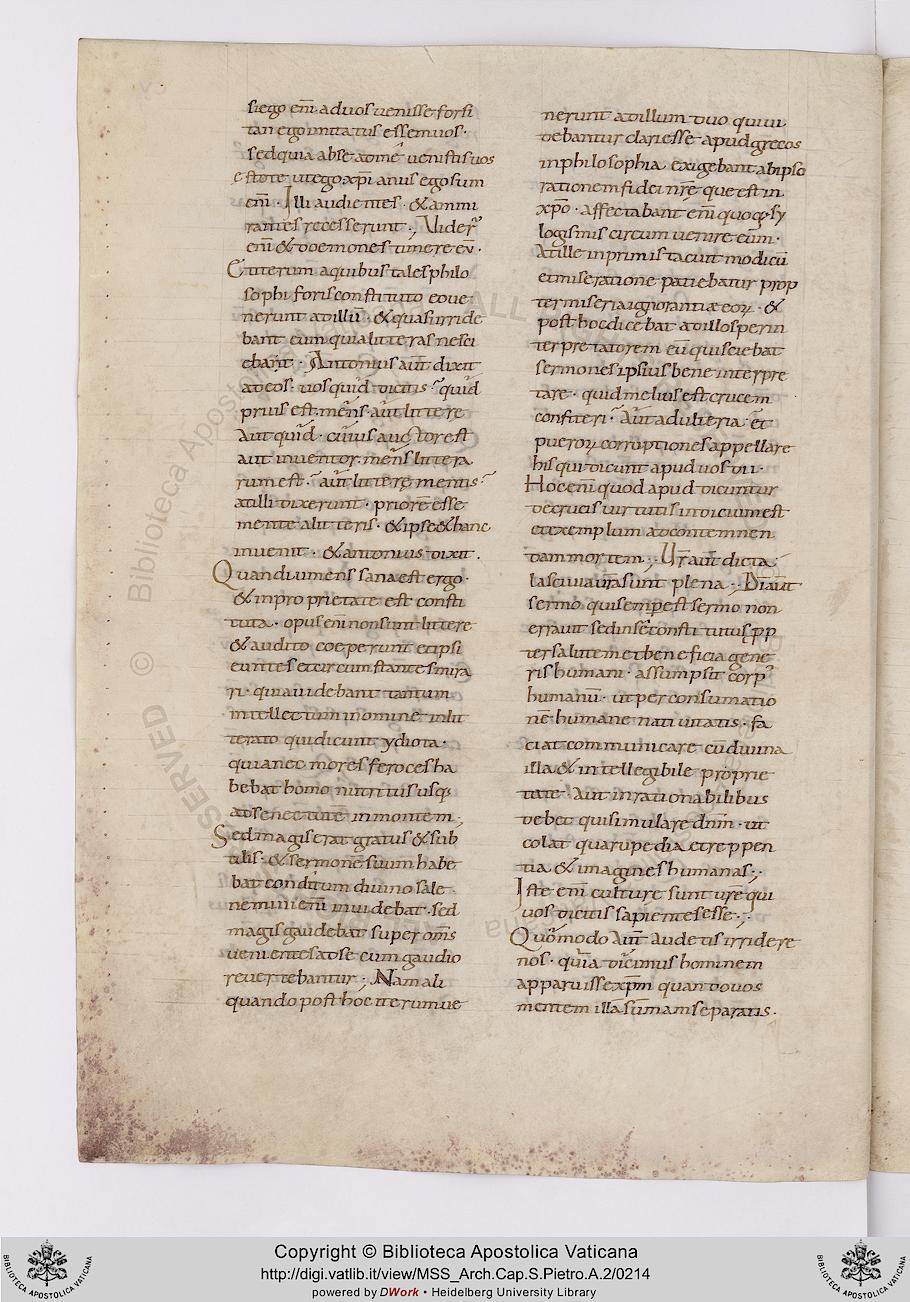 siego eni· aduos uenisse forsi
tan ego imitatus essem uos·
sed quia abse adme uenistis uos
estote ut ego xpianus ego sum
eni· Illi audientes· & ammi
rantes recesserunt·, Uider
eni & doemones timere eu·
Et iterum aquibus tales philo
sophi foris constituto eoue
nerunt adillu· & quasi irride
bant eum quia litteras nesci
ebant· Antonius aut dixit
ad eos· uos quid dicitis· quid
prius est· mens· aut littere
Aut quid· cuius auctor est
aut inuentor· mens littera
rum est· aut littere mentis
atilli dixerunt· priore esse
mente aliteris· & ipse & hanc
inuenit· & antonius dixit·
Quandiu mens sana est ergo·
& in proprietate est consti
tuta· opus eni non sunt littere
& audito coeperunt et ipsi
euntes et circumstantes mira
ri· quia uidebant tantum
intellectum in omine inlit
terato qui dicunt ydiota·
quia nec mores feroces ha
bebat homo nutritus usq;
ad senectute in montem·,
Sed magis erat gratus & sub
tilis· & sermone suum habe
bat conditum diuino sale·
nemini eni inuidebat· sed
magis gaudebat super oms
uenientes adse cum gaudio
reuertebantur·, Nam ali
quando post hoc iterum ue
nerunt adillum duo qui ui
debantur clari esse apud grecos
in philosophia exigebant abipso
rationem fidei nre que est in
xpo· affectabant eni quoq; sy
logismis circum uenire eum·
At ille inprimis tacuit modicu
et miseratione patiebatur prop
ter miseria ignorantiæ eoꝝ· &
post hoc dicebat adillos per in
terpretatorem eu qui sciebat
sermones ipsius bene interpre
tare· quid melius est crucem
confiteri· Aut adulteria et
pueroꝝ corruptiones appellare
his qui dicunt apud uos dii·
Hoc eni quod apud dicuntur
de crucis uirtutis indicium est
et exemplum ad contemnen
dam mortem·, Ur aut dicta
lasciuia ura sunt plena·, Di aut
sermo qui semp est sermo non
errauit sed inse constitutus pp
ter salutem et beneficia gene
ris humani· assumpsit corp
humanu· ut per consumatio
ne humane natiuitatis· fa
ciat communicare cu diuina
illa & intellegibile proprie
tate· Aut inrationabilibus
debet qui simulare dnm· ut
colat quarupedia et reppen
tia & imagines humanas·,
Iste eni culture sunt ure qui
uos dicitis sapientes esse·,
Quomodo aut audetis irridere
nos· quia dicimus hominem
apparuisse xpm quando uos
mentem illa sumam separatis·
Copyright © Biblioteca Apostolica Vaticana
http://digi.vatlib.it/view/MSS_Arch.Cap.S.Pietro.A.2/0214
powered by DWork • Heidelberg University Library